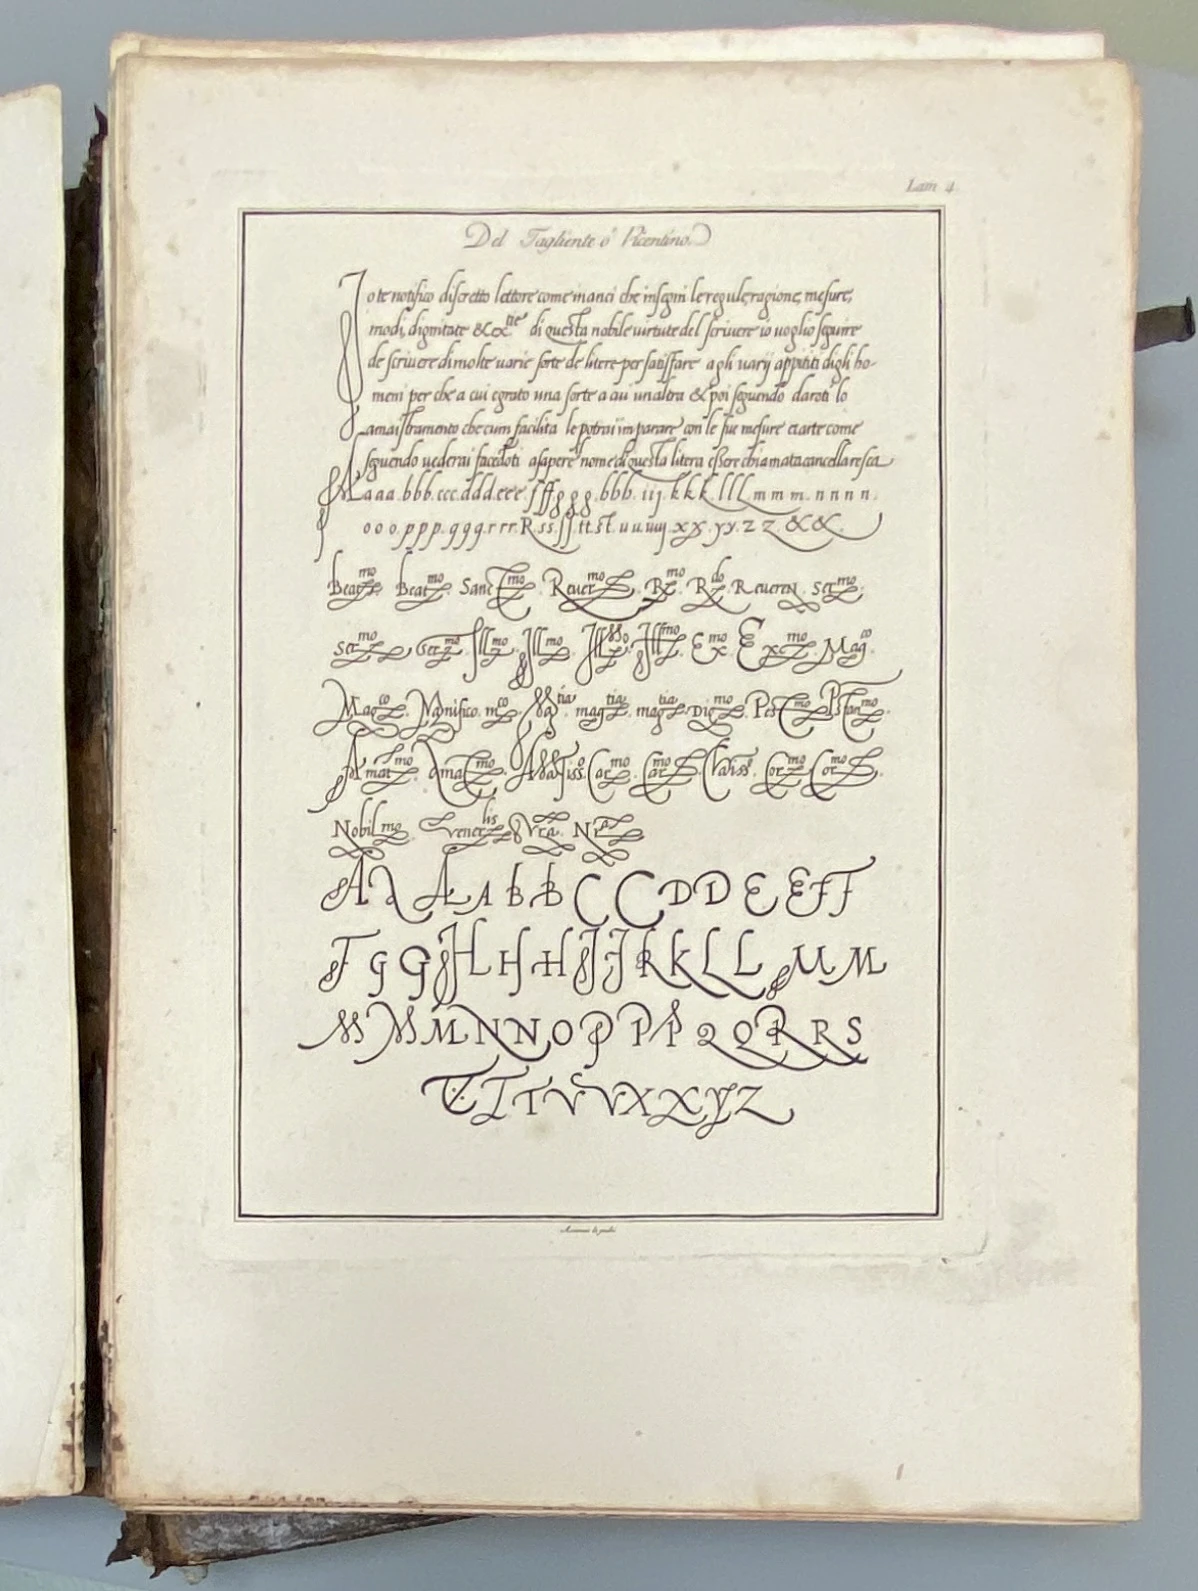 Lam 4
Del Tagliente o Vicentino.
Io te notifico discretto lettore come inanci che insegni le regule, ragione, mesure,
modi, dignitate & ex.tie di questa nobile virtute del scrivere io voglio seguire
de scrivere di molte varie sorte de litere per satisffare agli varij appititi digli ho-
meni per che a cui e grato una sorte a cui un altra & poi seguendo daroti lo
amaistramento che cum facilita le potrai imparare con le sue mesure et arte come
seguendo vederai facedoti asapere nome di questa litera essere chiamata cancellaresca
A aaa.bbb.ccc.ddd.eee.fffggg.hhh.iij.kkk.lll.mmm.nnnn.
ooo.ppp.qqq.rrr.R.ss.ſſ.tt.st.uu.uuy.xx.yy.zz &&.
Beat.mo Beat.mo Sanct.mo Rever.mo R.mo R.do Reveren. Ser.mo
Ser.mo Ser.mo Ill.mo Ill.mo Ill.mo Ill.mo Ex.mo Ex.mo Mag.co
Mag.co Magnifico. m.co Mag.tia mag.tia mag.tia Dig.mo Pest.mo Pstan.mo
Amat.mo Amat.mo Car.mo Car.mo Cor.mo Cor.mo
Nobil.mo Vener.lis Vra. Nra
A A A A b b C C D D E E F F
F G G H H H J J K K L L M M
M M M N N O P P P Q Q R R S
T T T V V X X Y Z